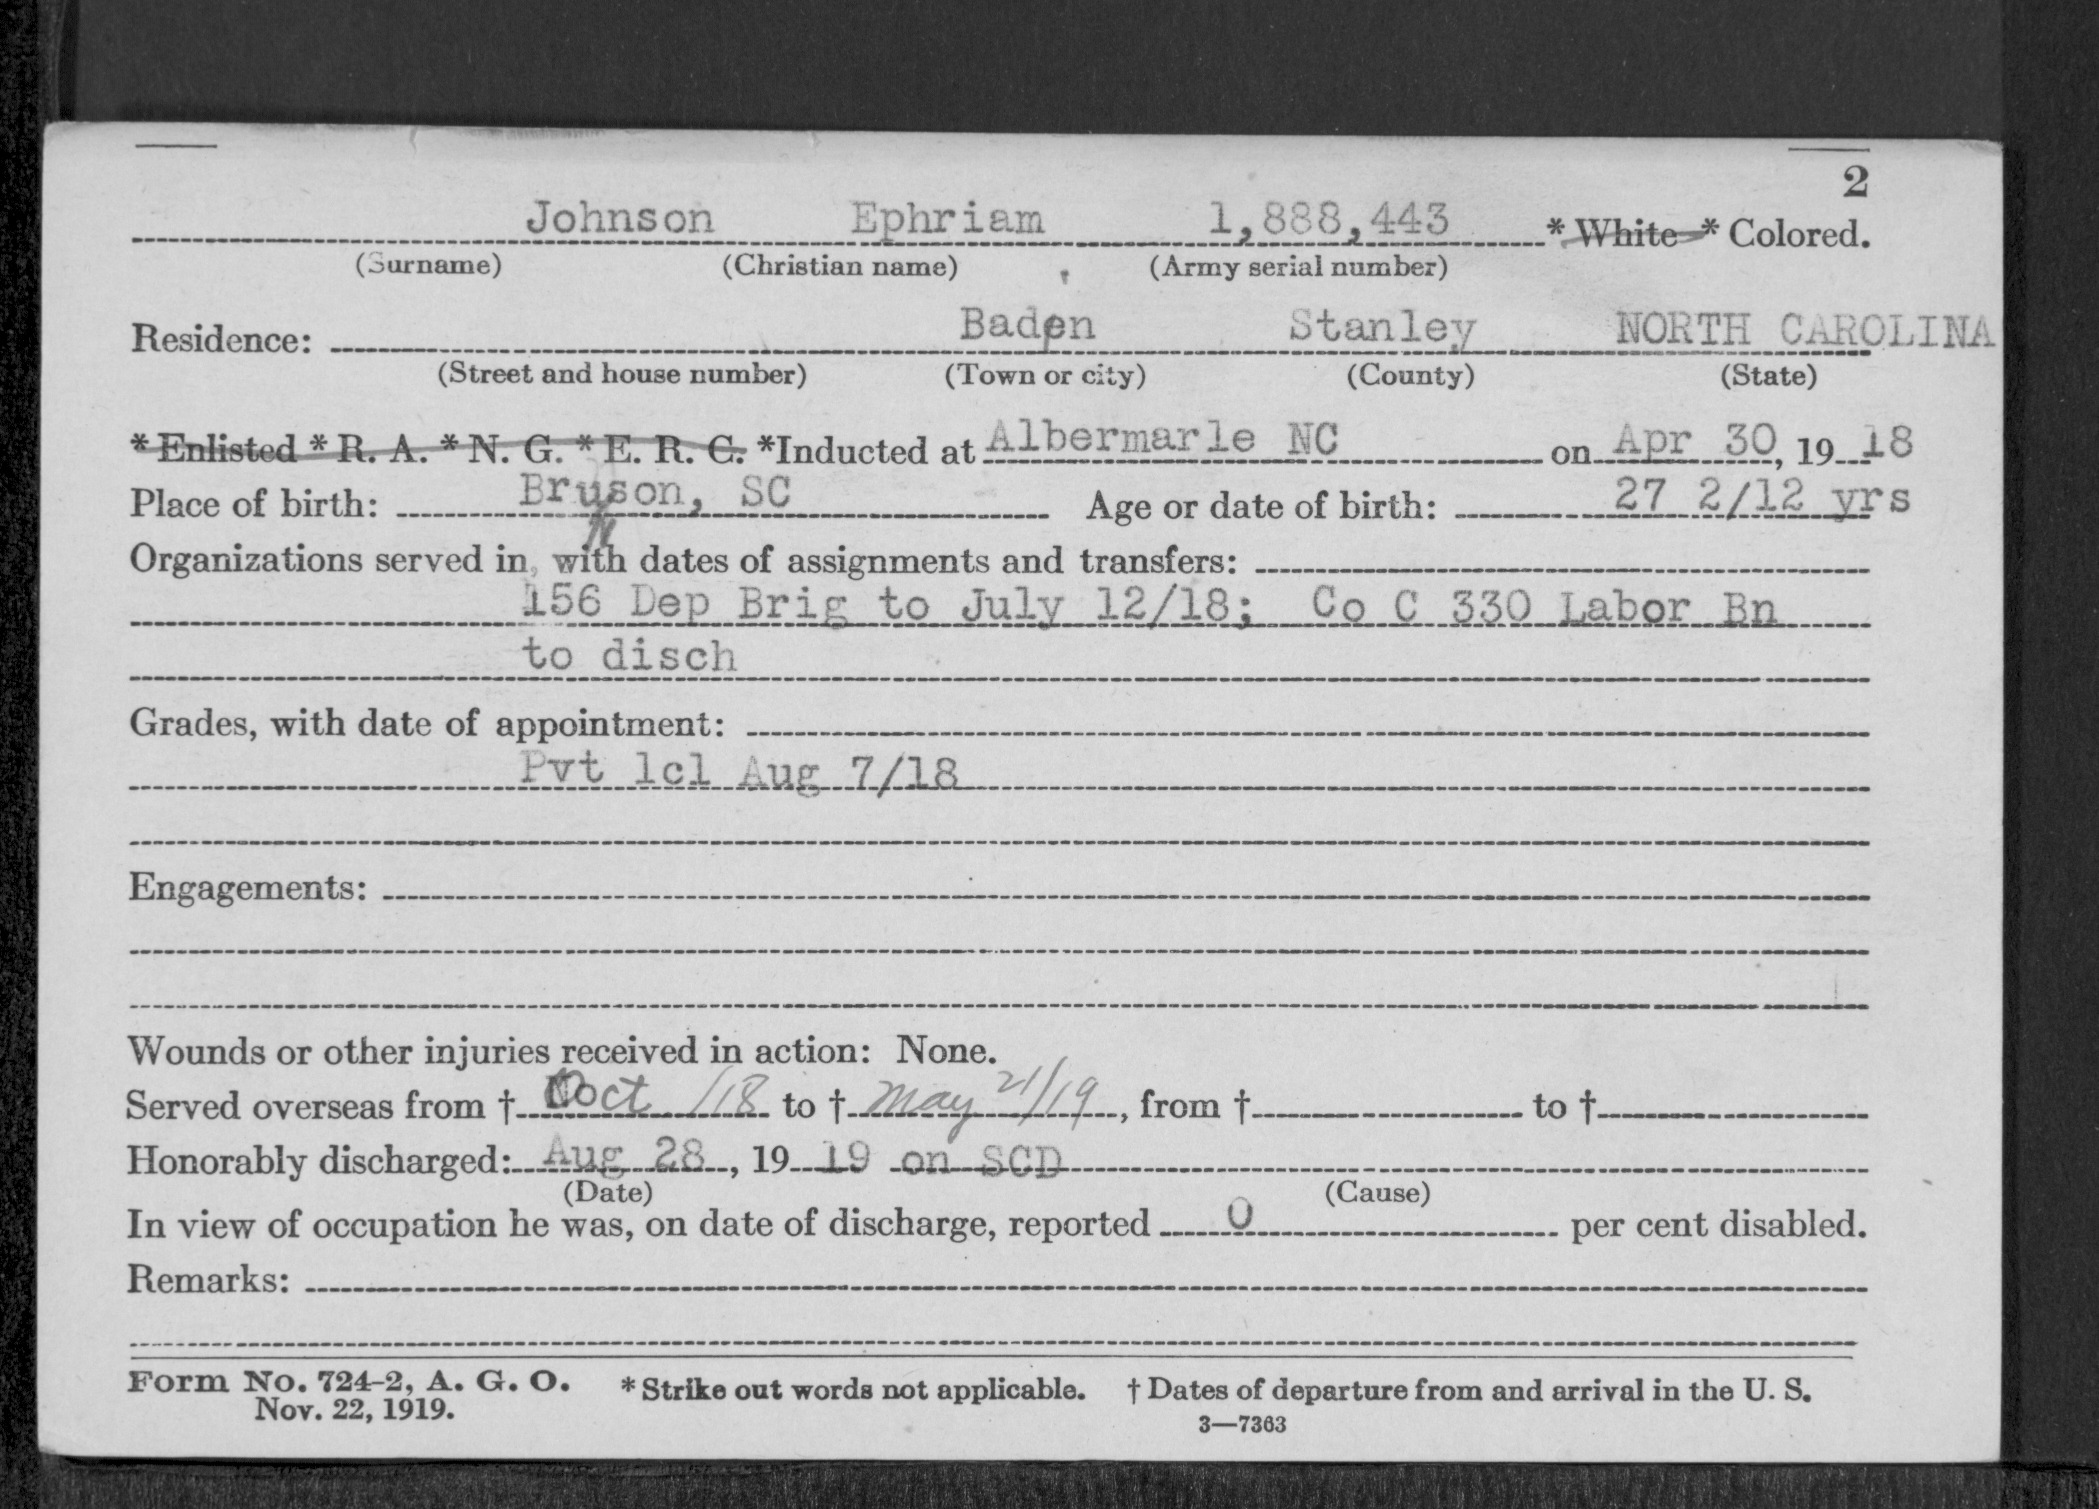 2
Johnson Ephriam 1,888,443 * White * Colored.
(Surname) (Christian name) (Army serial number)
Residence: Baden Stanley NORTH CAROLINA
(Street and house number) (Town or city) (County) (State)
* Enlisted * R. A. * N. G. * E. R. C. *Inducted at Albermarle NC on Apr 30, 1918
Place of birth: Brunson, SC Age or date of birth: 27 2/12 yrs
Organizations served in, with dates of assignments and transfers:
156 Dep Brig to July 12/18; Co C 330 Labor Bn
to disch
Grades, with date of appointment:
Pvt 1cl Aug 7/18
Engagements:
Wounds or other injuries received in action: None.
Served overseas from † Oct /18 to † May 21/19, from † to †
Honorably discharged: Aug 28, 1919 on SCD
(Date) (Cause)
In view of occupation he was, on date of discharge, reported 0 per cent disabled.
Remarks:
Form No. 724-2, A. G. O. * Strike out words not applicable. † Dates of departure from and arrival in the U. S.
Nov. 22, 1919.
3—7363